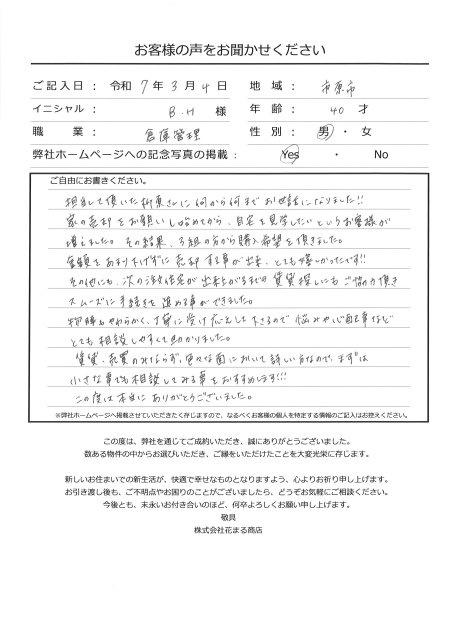 お客様の声をお聞かせください
ご記入日： 令和 7 年 3 月 4 日
地　域： 市原市
イニシャル： B.H 様
年　齢： 40 才
職　業： 倉庫管理
性　別： 男 ・ 女
弊社ホームページへの記念写真の掲載： Yes ・ No
ご自由にお書きください。
担当して頂いた さんに何から何までお世話になりました!!
家の売却をお願いし始めてから、自宅を見学したいというお客様が
増えました。その結果、3組の方から購入希望を頂きました。
金額をあまり下げずに売却する事が出来、とても嬉しかったです!!
その他にも、次の注文住宅が出来上がるまでの賃貸探しにもご協力頂き
スムーズに手続きを進める事ができました。
物腰もやわらかく、丁寧に受け応えして下さるので悩みや心配事など
とても相談しやすくて助かりました。
賃貸、売買のみならず、色々な面において詳しい方なので、まずは
小さな事でも相談してみる事をおすすめします!!!
この度は本当にありがとうございました。
※弊社ホームページへ掲載させていただきたく存じますので、なるべくお客様の個人を特定する情報のご記入はお控えください。
この度は、弊社を通じてご成約いただき、誠にありがとうございました。
数ある物件の中からお選びいただき、ご縁をいただけたことを大変光栄に存じます。
新しいお住まいでの新生活が、快適で幸せなものとなりますよう、心よりお祈り申し上げます。
お引き渡し後も、ご不明点やお困りのことがございましたら、どうぞお気軽にご相談ください。
今後とも、末永いお付き合いのほど、何卒よろしくお願い申し上げます。
敬具
株式会社花まる商店